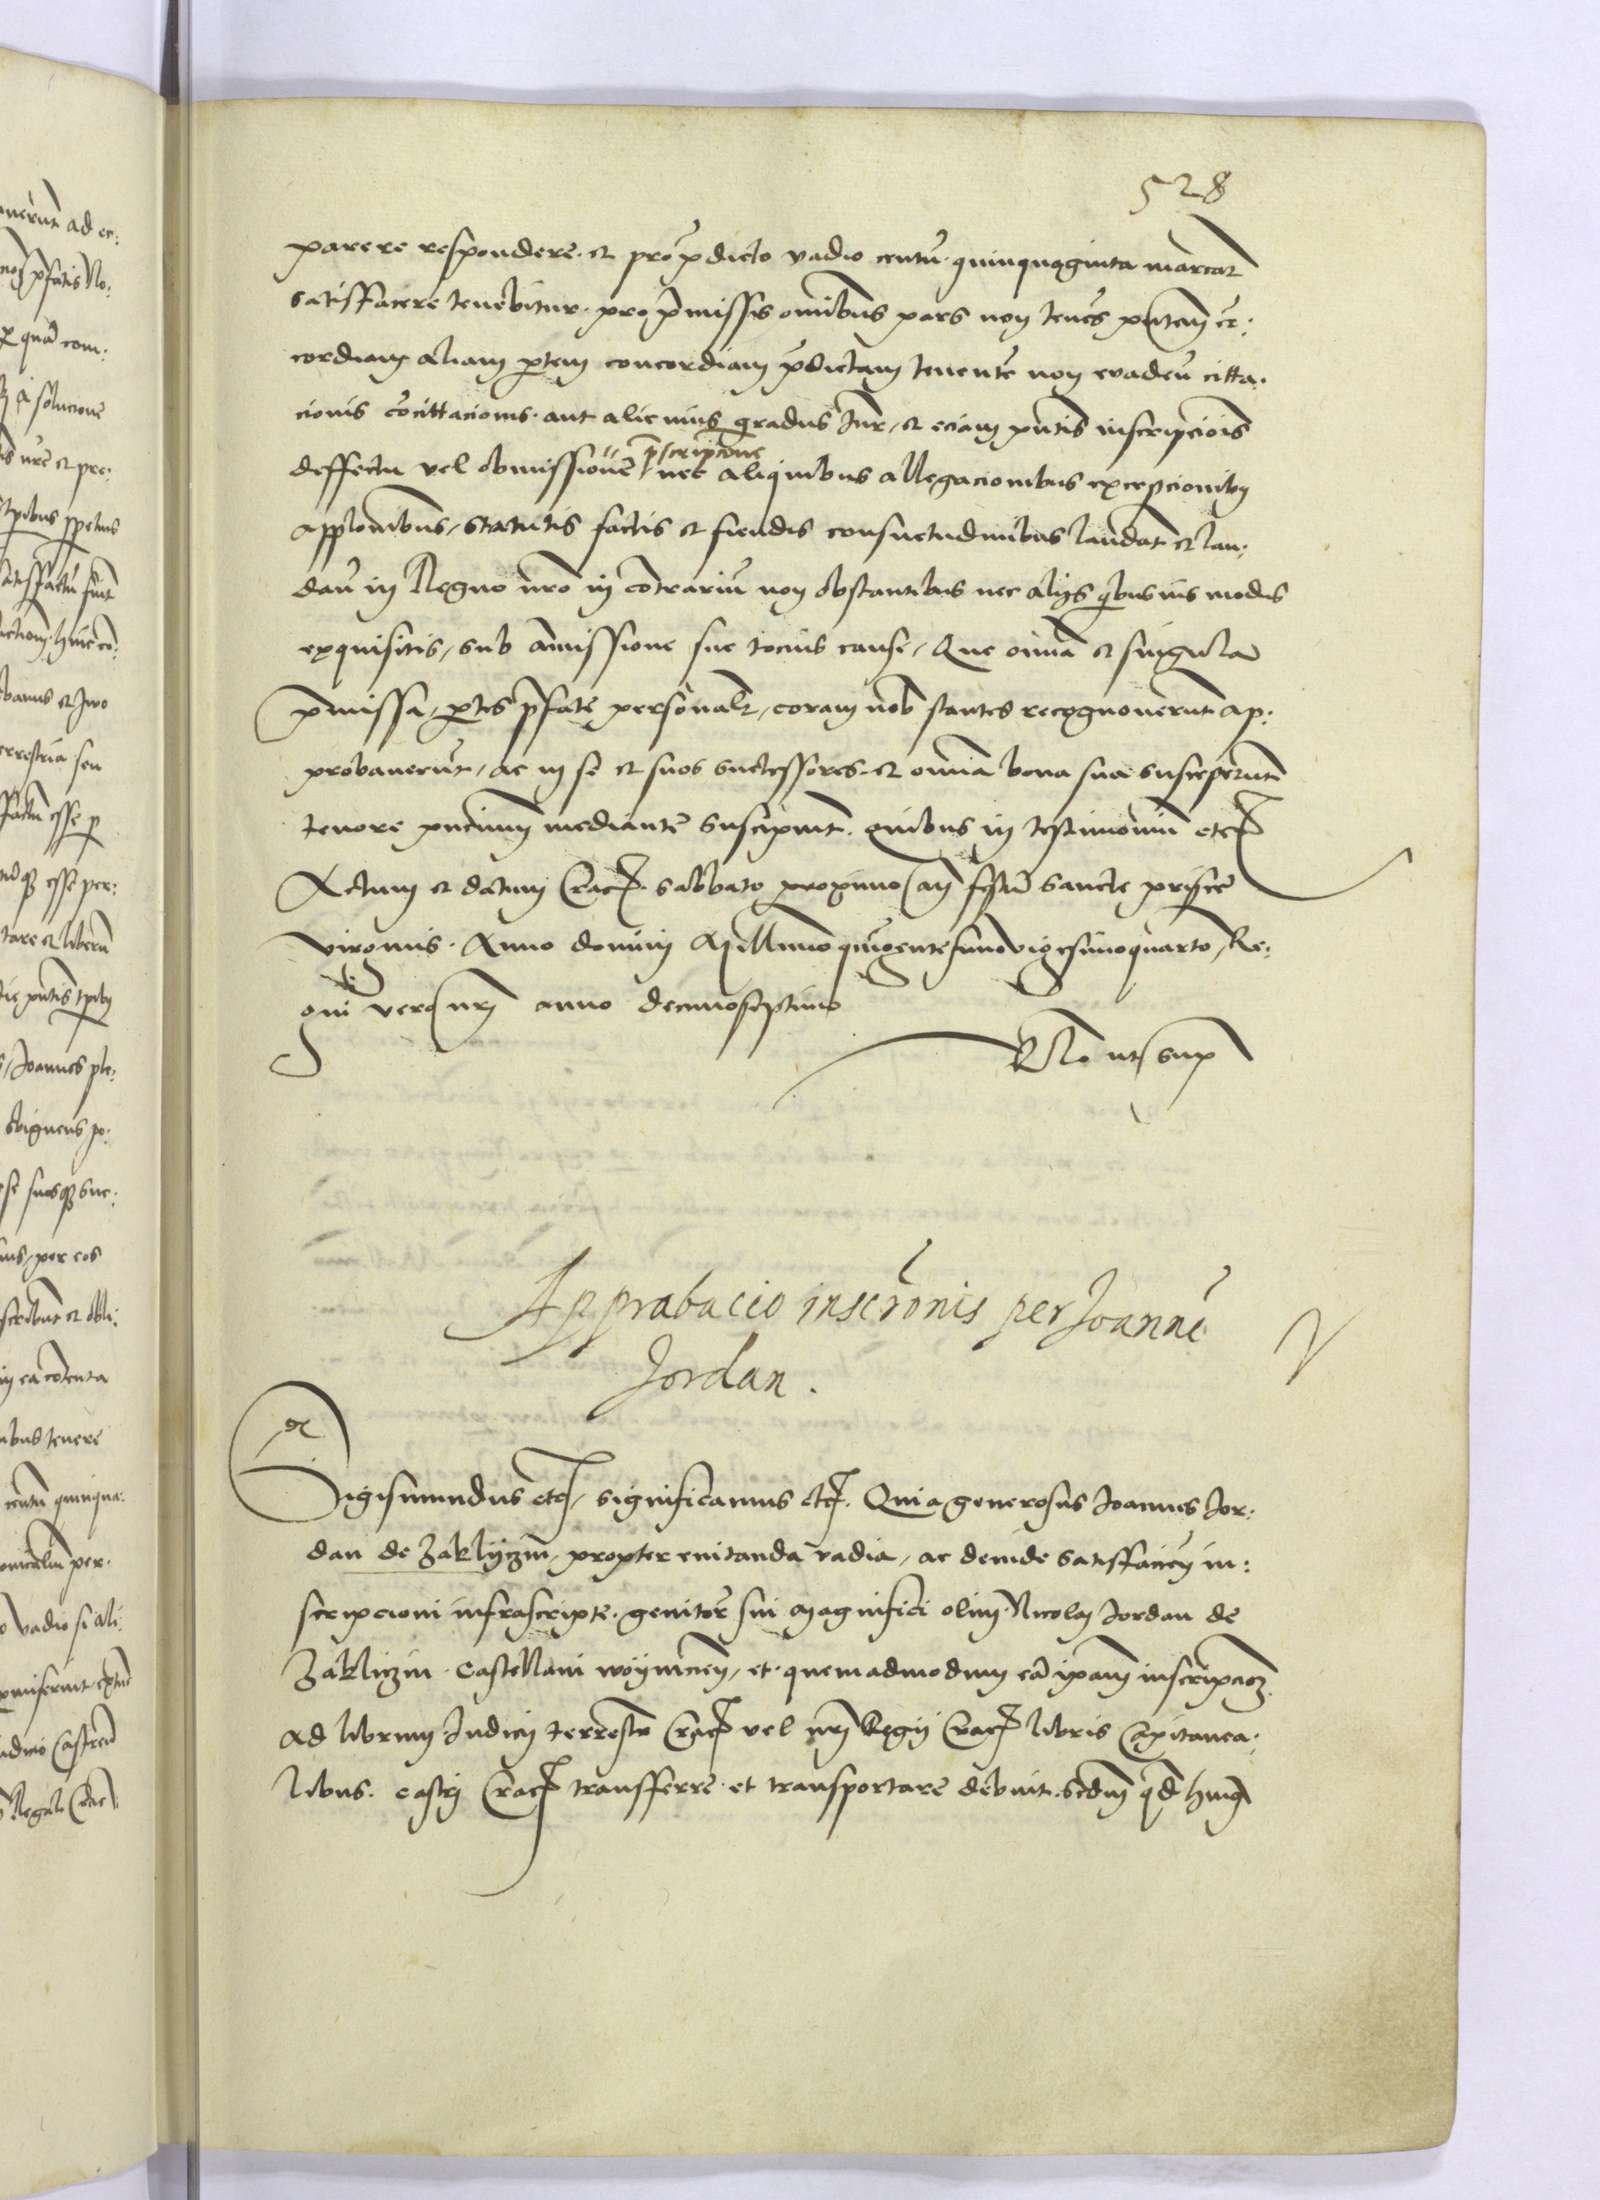 528
parere respondere. et pro p̄dicto vadio centū. quinquaginta marcar̄
satisffacere tenebitur. pro p̄missis omībus pars non tenēs pn̄tem cō:
cordiam aliam ptem concordiam p̄dictam tenentē non evadeū citta:
cionis cōcittacionis. aut alicuius gradus Jur̄, et eciam pn̄tis inscripciōis
deffectu vel obmissionē p̄scripcione nec aliquibus allegacionibus excepcionibꝫ
applōnibus, statutis factis et fiendis consuetudinibus laudat̄ et lau:
dan̄ in Regno nrō in cōtrariū non obstantibus nec alijs qbusuis modis
exquisitis, sub amissione sue tocius cause, Que om̄ia et singula
p̄missa, ptes p̄fate personalr̄, coram nob̄ stantes recognoverunt ap:
probaverūt, ac in se et suos successores et om̄ia bona sua susceperunt
tenore pn̄cium mediantē suscipiunt. quibus in testimoniū etcꝫ
Actum et datum Cracꝫ. sabbato proximo an̄ festū Sancte prisce
virginis. Anno domini Millimo quīgentesimovigesimoquarto, Re:
gni vero nrī anno decimoseptimo
Rlō ut supꝫ
Approbacio inscrōnis per Joannē
Jordan.
Sigismundus etcꝫ, significamus etcꝫ. Quia generosus Joannes Jor:
dan de Zaklyczin, propter evitanda vadia, ac deinde satisfacien̄ in:
scripcioni infrascripte. genitor̄ sui magnifici olim Nicolai Jordan de
Zakliczin. Castellani woynicen̄, et quemadmodum eā ipam inscripcōꝫ
ad librum Judicij terrestr̄ Cracꝫ vel nrī Regij Cracꝫ libris Capitanea:
libus. castri Cracꝫ transferre et transportare debuit. scdm̄ qd̄ huiꝫ